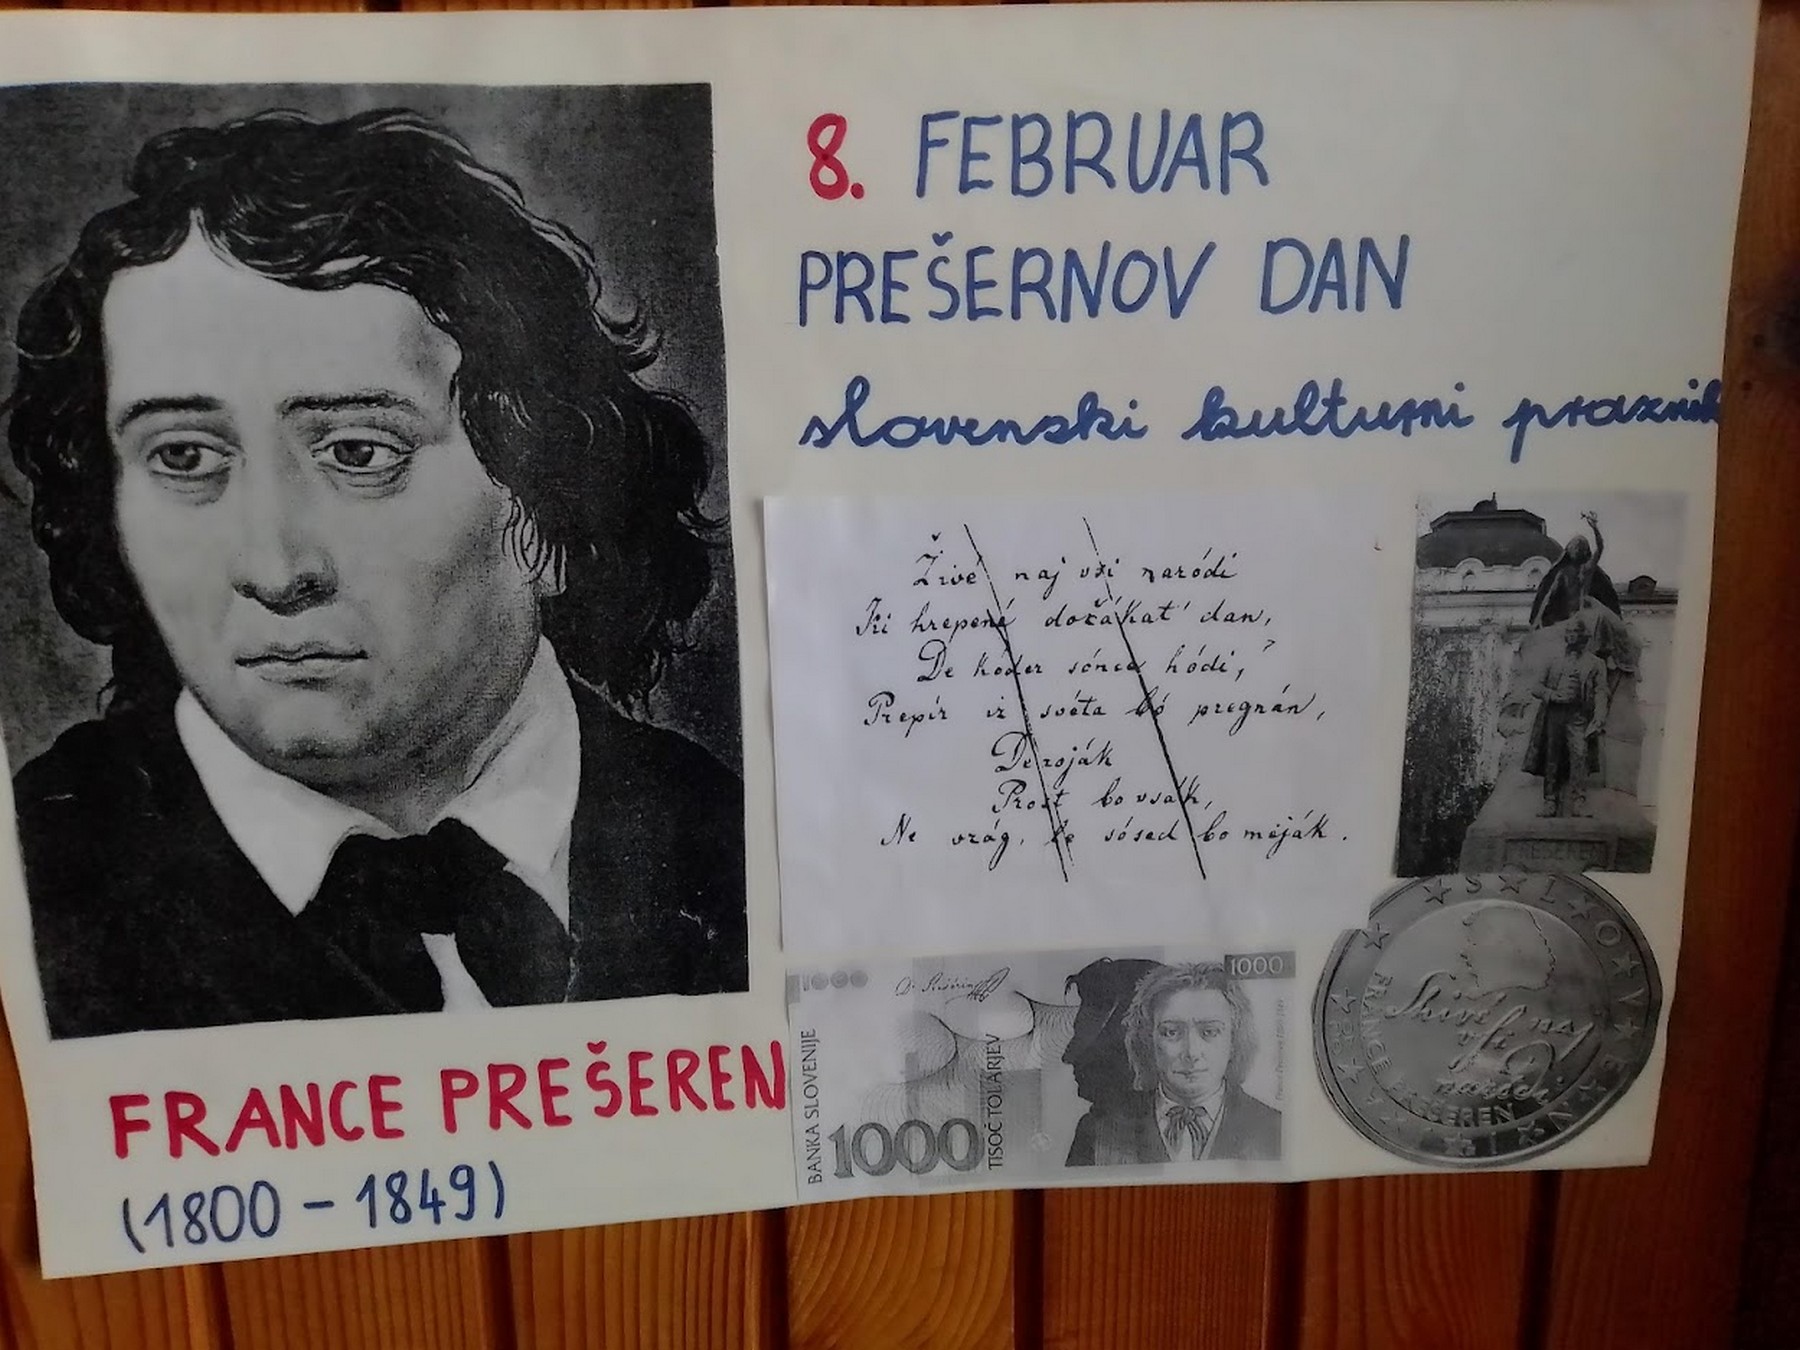 8. FEBRUAR
PREŠERNOV DAN
slovenski kulturni praznik
Živé naj vsi naródi
Ki hrepené dočákat' dan,
De kóder sónce hódi,
Prepír iz svéta bó pregnán,
De roják
Prost bo vsák,
Ne vrág, le sósed bo meják.
FRANCE PREŠEREN
(1800 - 1849)
1000
1000
BANKA SLOVENIJE
1000
TISOČ TOLARJEV
SLOVENIJA
FRANCE PREŠEREN
Shivé naj
vsi
narodi